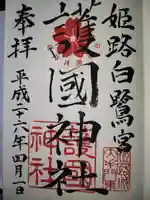 姫路白鷺宮
護國神社
奉拝
平成二十六年四月一日
護国
神社